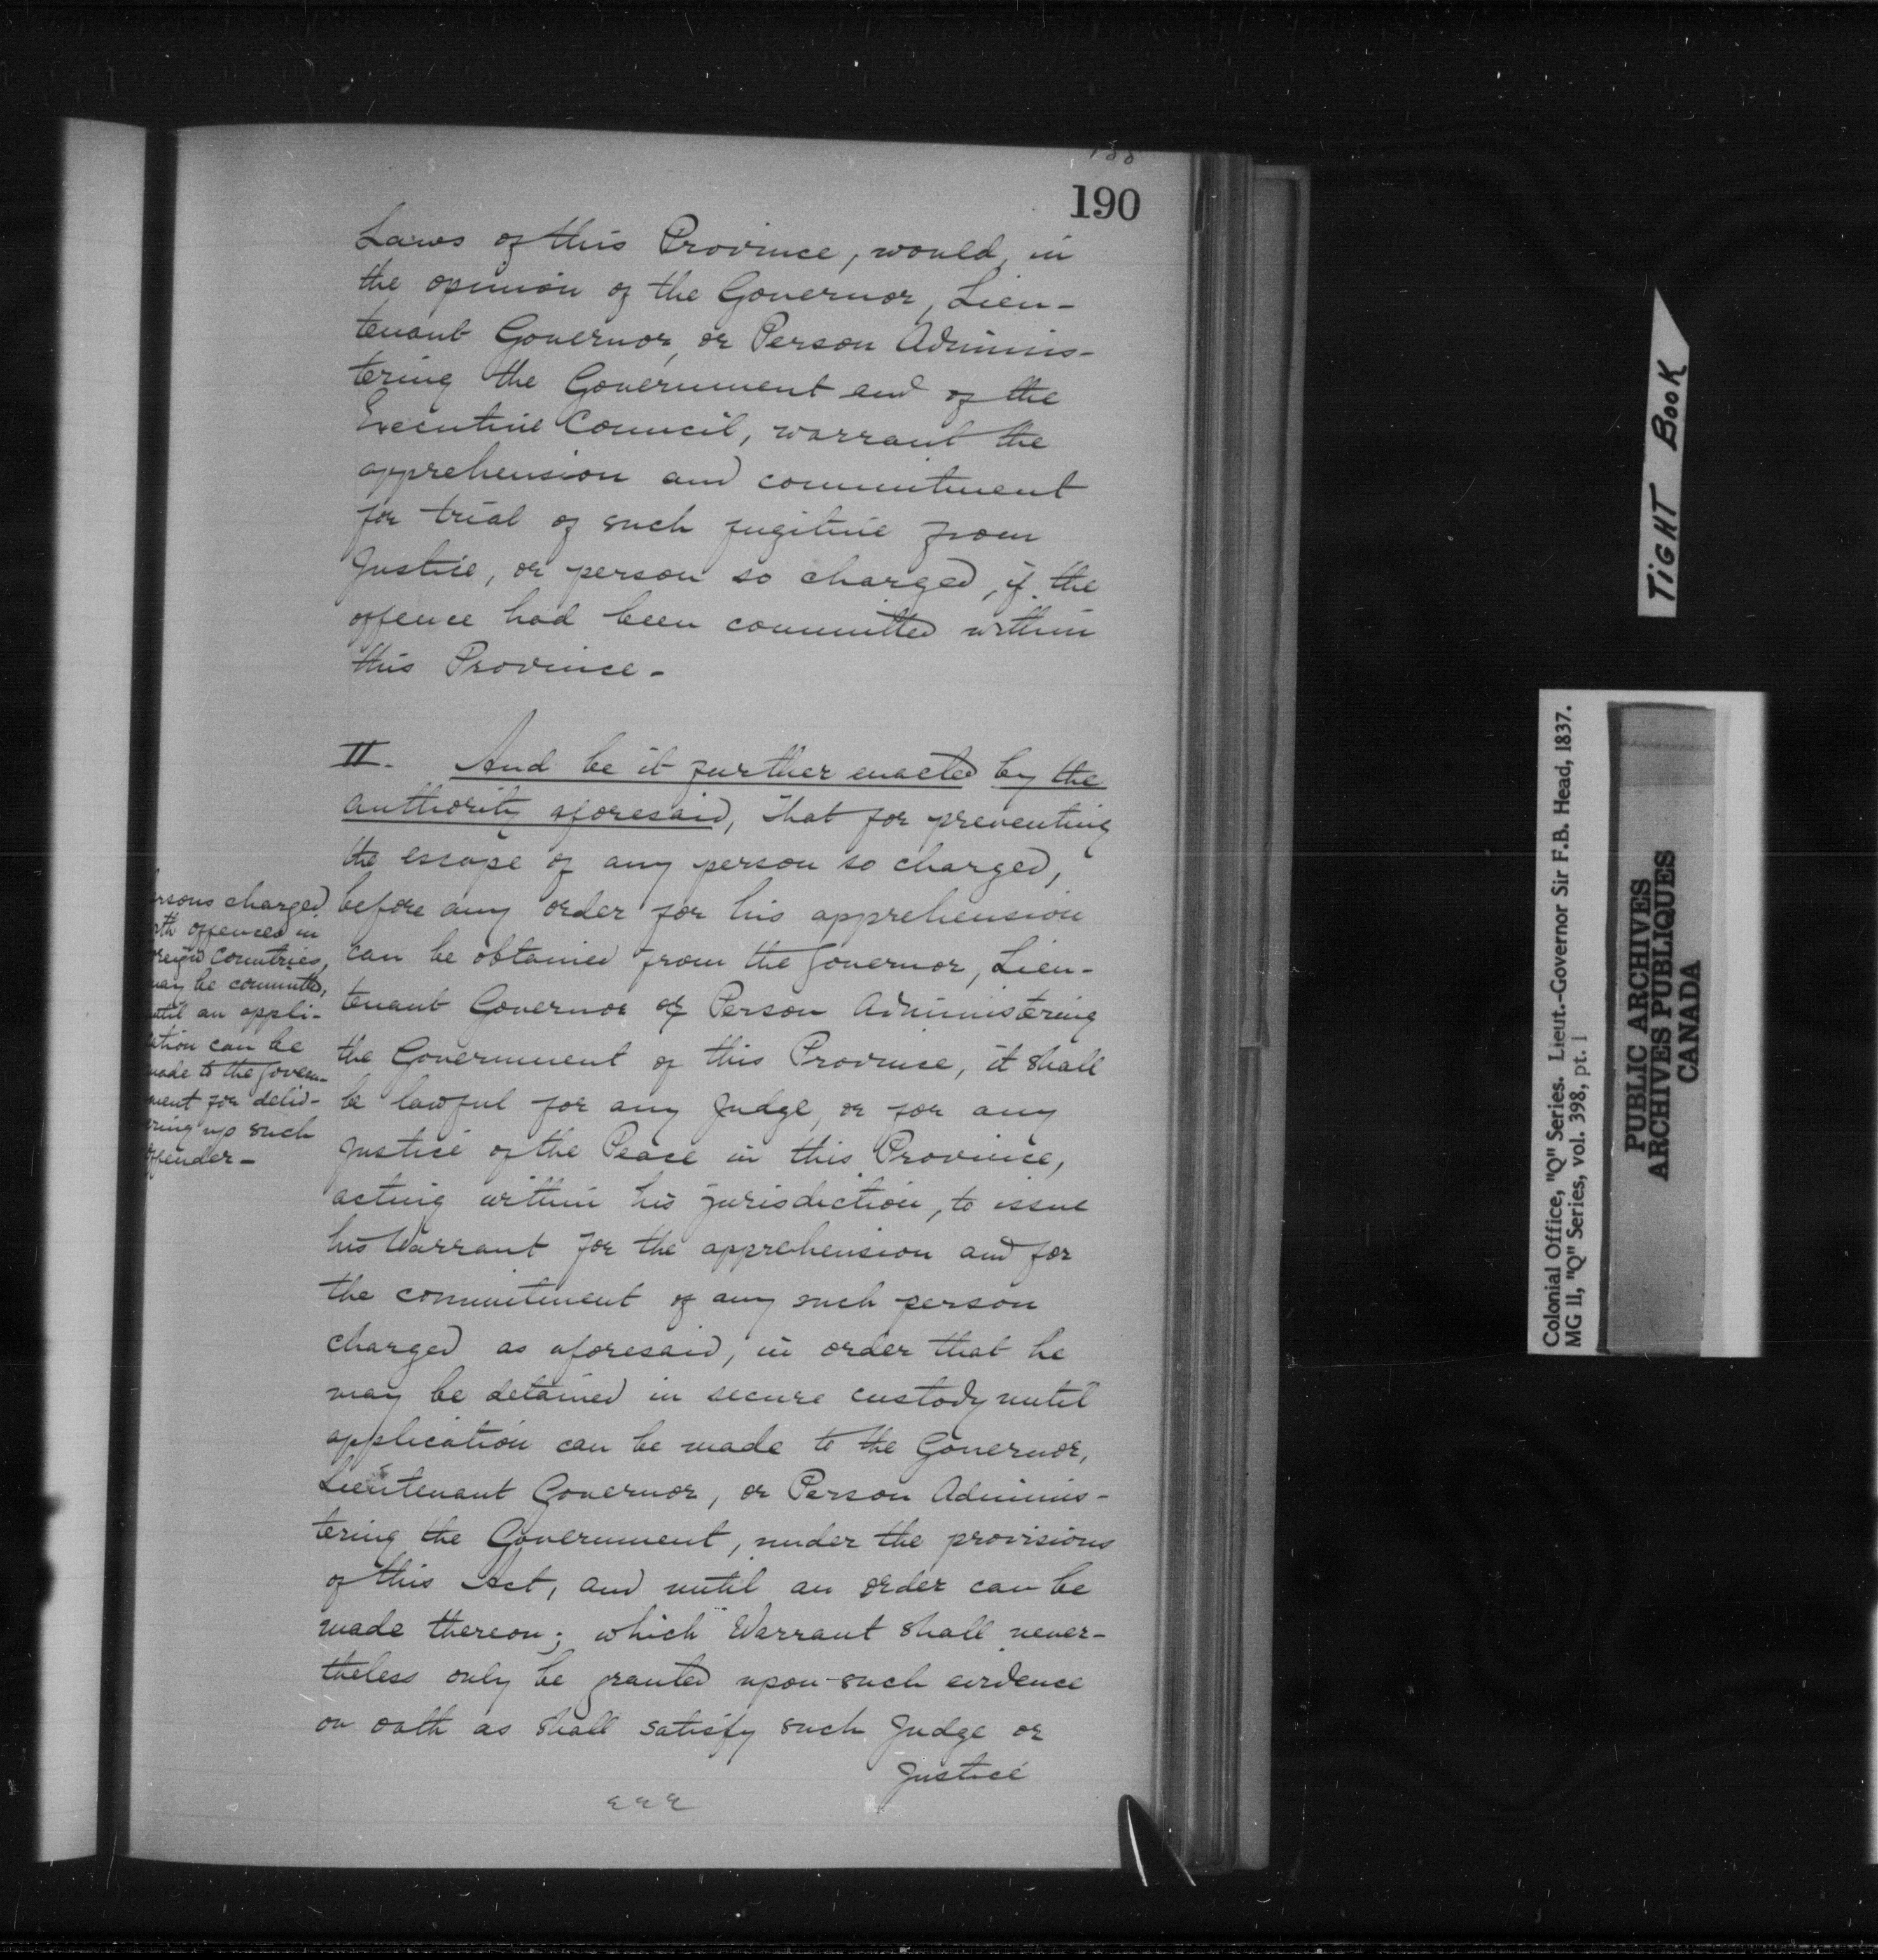 190
Laws of this Province, would, in
the opinion of the Governor, Lieu-
tenant Governor, or Person Adminis-
tering the Government and of the
Executive Council, warrant the
apprehension and commitment
for trial of such fugitive from
Justice, or person so charged, if the
offence had been committed within
this Province-
II. And be it further enacted by the
authority aforesaid, that for preventing
the escape of any person so charged,
before any order for his apprehension
can be obtained from the Governor, Lieu-
tenant Governor or Person Administering
the Government of this Province, it shall
be lawful for any Judge, or for any
Justice of the Peace in this Province,
acting within his jurisdiction, to issue
his Warrant for the apprehension and for
the commitment of any such person
charged as aforesaid, in order that he
may be detained in secure custody until
application can be made to the Governor,
Lieutenant Governor, or Person Adminis-
tering the Government, under the provisions
of this Act, and until an order can be
made thereon; which Warrant shall never-
theless only be granted upon such evidence
on oath as shall satisfy such Judge or
Justice
ersons charged
ith offences in
oreign Countries,
may be committed,
until an appli-
cation can be
made to the Govern-
ment for deliv-
ering up such
offender-
TIGHT BOOK
Colonial Office, "Q" Series. Lieut.-Governor Sir F.B. Head, 1837.
MG 11, "Q" Series, vol. 398, pt. 1
PUBLIC ARCHIVES
ARCHIVES PUBLIQUES
CANADA